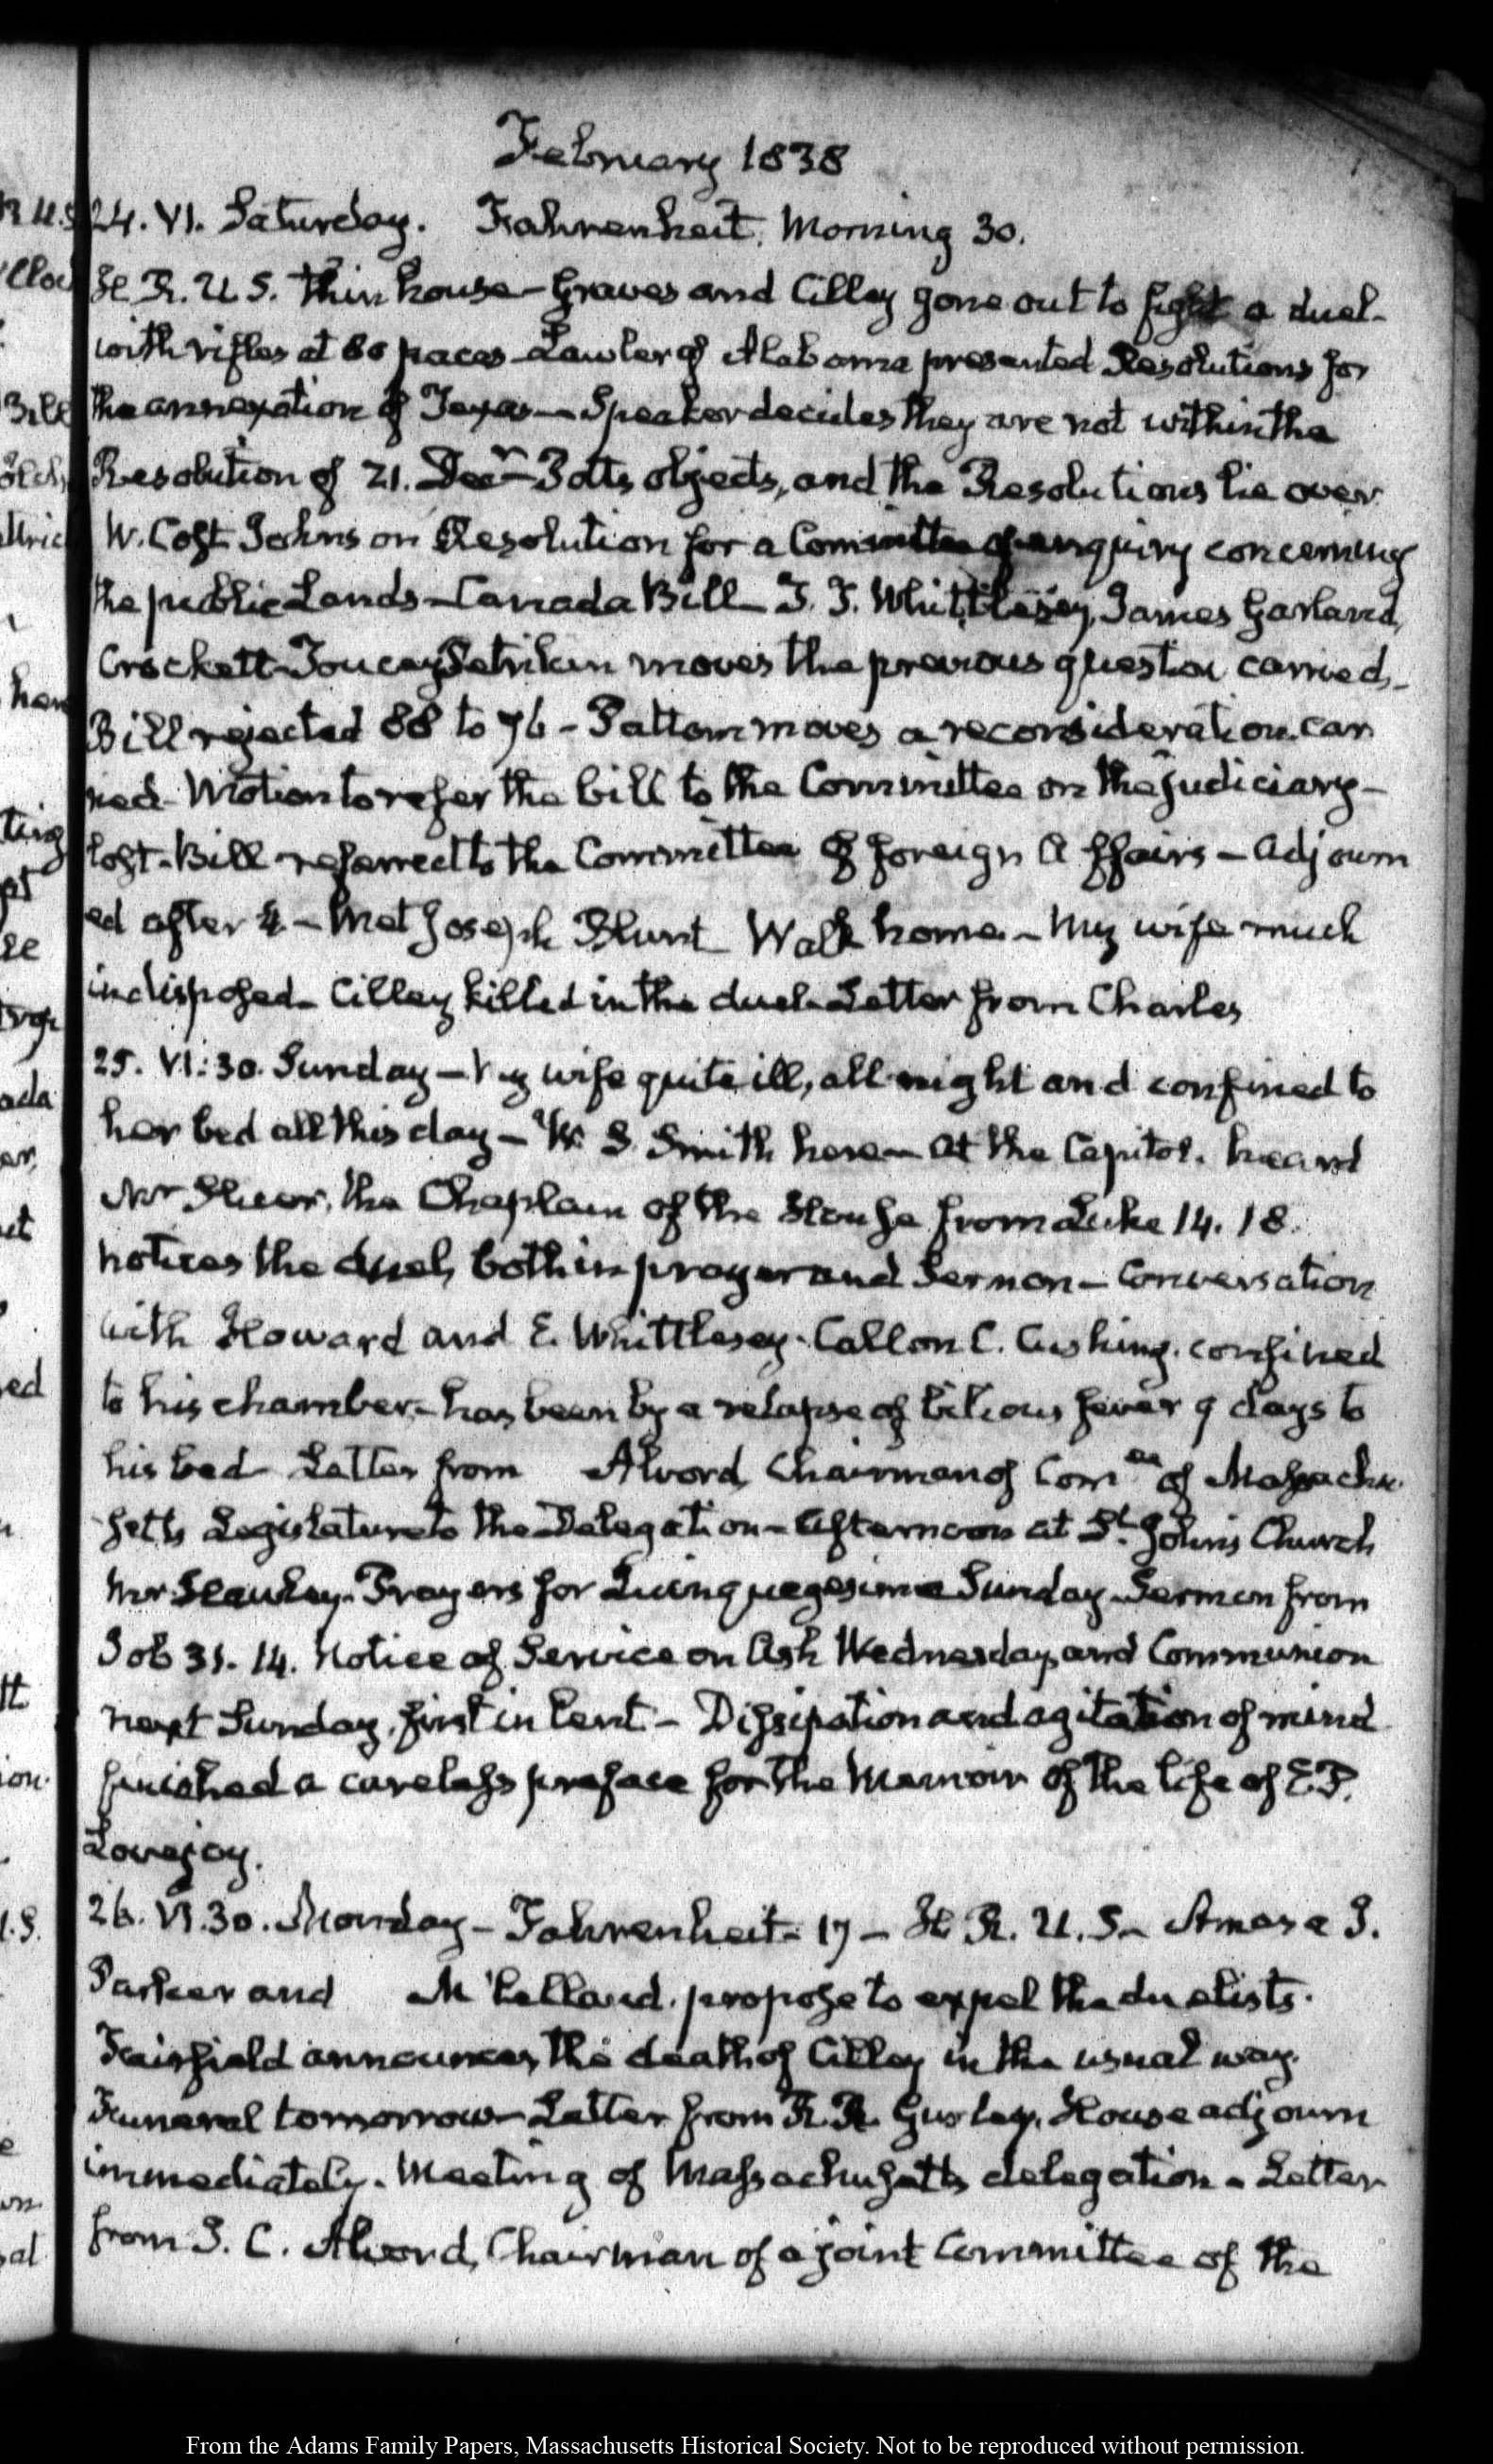 February 1838
24. VI. Saturday. Fahrenheit. Morning 30.
H. R. U. S. thin house – Graves and Cilley gone out to fight a duel –
with rifles at 80 paces – Lawler of Alabama presented Resolutions for
the annexation of Texas – Speaker decides they are not within the
Resolution of 21. Decr – Potts objects, and the Resolutions lie over.
W. Cost Johnson Resolution for a Committee of enquiry concerning
the public Lands – Canada Bill – T. T. Whittlesey, James Garland,
Crockett Toucey Hetriken moves the previous question carried –
Bill rejected 88 to 76 – Patton moves a reconsideration. car
ried – Motion to refer the bill to the Committee on the Judiciary –
lost – Bill referred to the Committee of foreign Affairs – Adjourn
ed after 4 – Met Joseph Blunt Walk home – My wife much
indisposed – Cilley killed in the duel – Letter from Charles
25. VI:30. Sunday – My wife quite ill, all night and confined to
her bed all this day – W. S. Smith here – At the Capitol. heard
Mr Slicer, the Chaplain of the House from Luke 14. 18.
notices the duel, both in prayer and Sermon – Conversation
with Howard and E. Whittlesey. Call on C. Cushing. confined
to his chamber – has been by a relapse of bilious fever 9 days to
his bed – Letter from Alvord, Chairman of Comee of Massachu
setts Legislature to the Delegation – Afternoon at St. John's Church
Mr Hawley. Prayers for Quinquagesima Sunday – Sermon from
Job 31. 14. Notice of Service on Ash Wednesday, and Communion
next Sunday, first in Lent – Dissipation and agitation of mind
finished a careless preface for the Memoir of the life of E. P.
Lovejoy.
26. VI.30. Monday – Fahrenheit – 17 – H. R. U. S. – Amasa J.
Parker and M'Clelland. propose to expel the duelists.
Fairfield announces, the death of Cilley in the usual way.
Funeral tomorrow – Letter from R. R. Gurley, House adjourn
immediately. Meeting of Massachusetts delegation – Letter
from J. C. Alvord, Chairman of a joint Committee of the
From the Adams Family Papers, Massachusetts Historical Society. Not to be reproduced without permission.